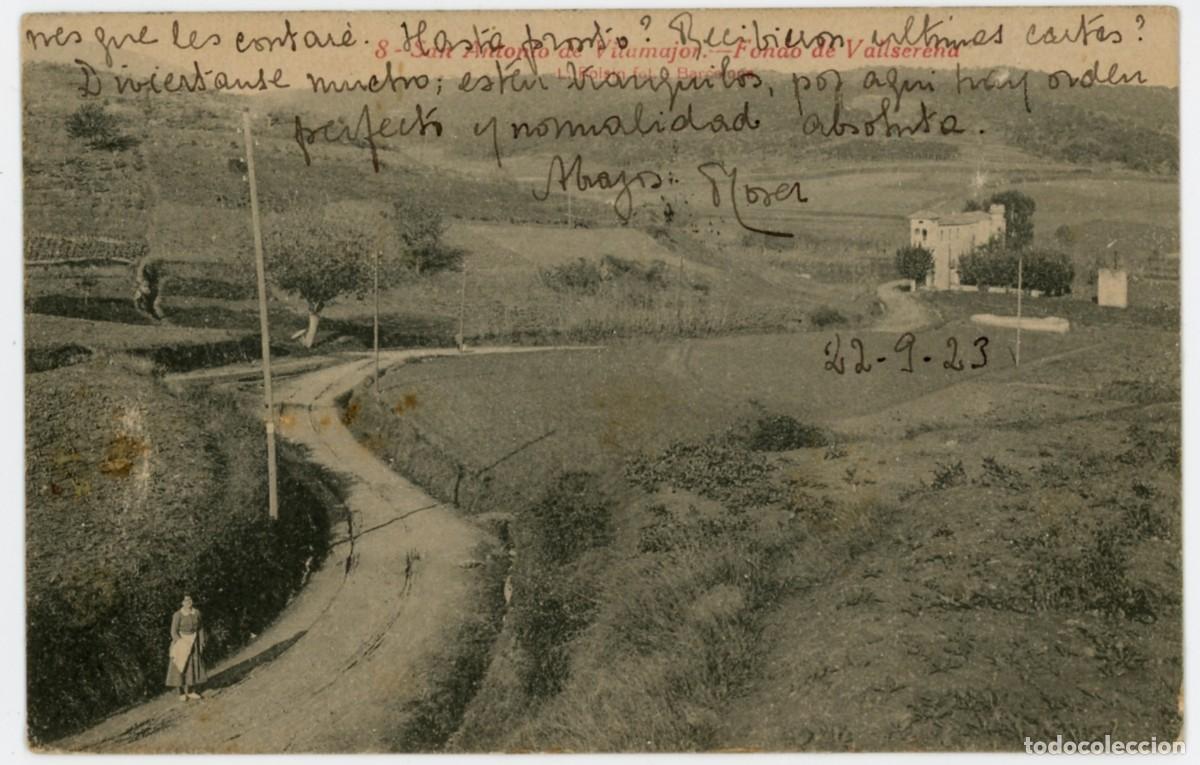 nes que les contaré. Hasta pronto? Recibieron ultimas cartas?
8 - San Antonio de Vilamajor. - Fondo de Vallserena
L. Roisin fot. Barcelona
Diviertanse mucho; estén tranquilos, por aqui hay orden
perfecto y normalidad absoluta.
Abrazos: Roser
22-9-23
todocoleccion